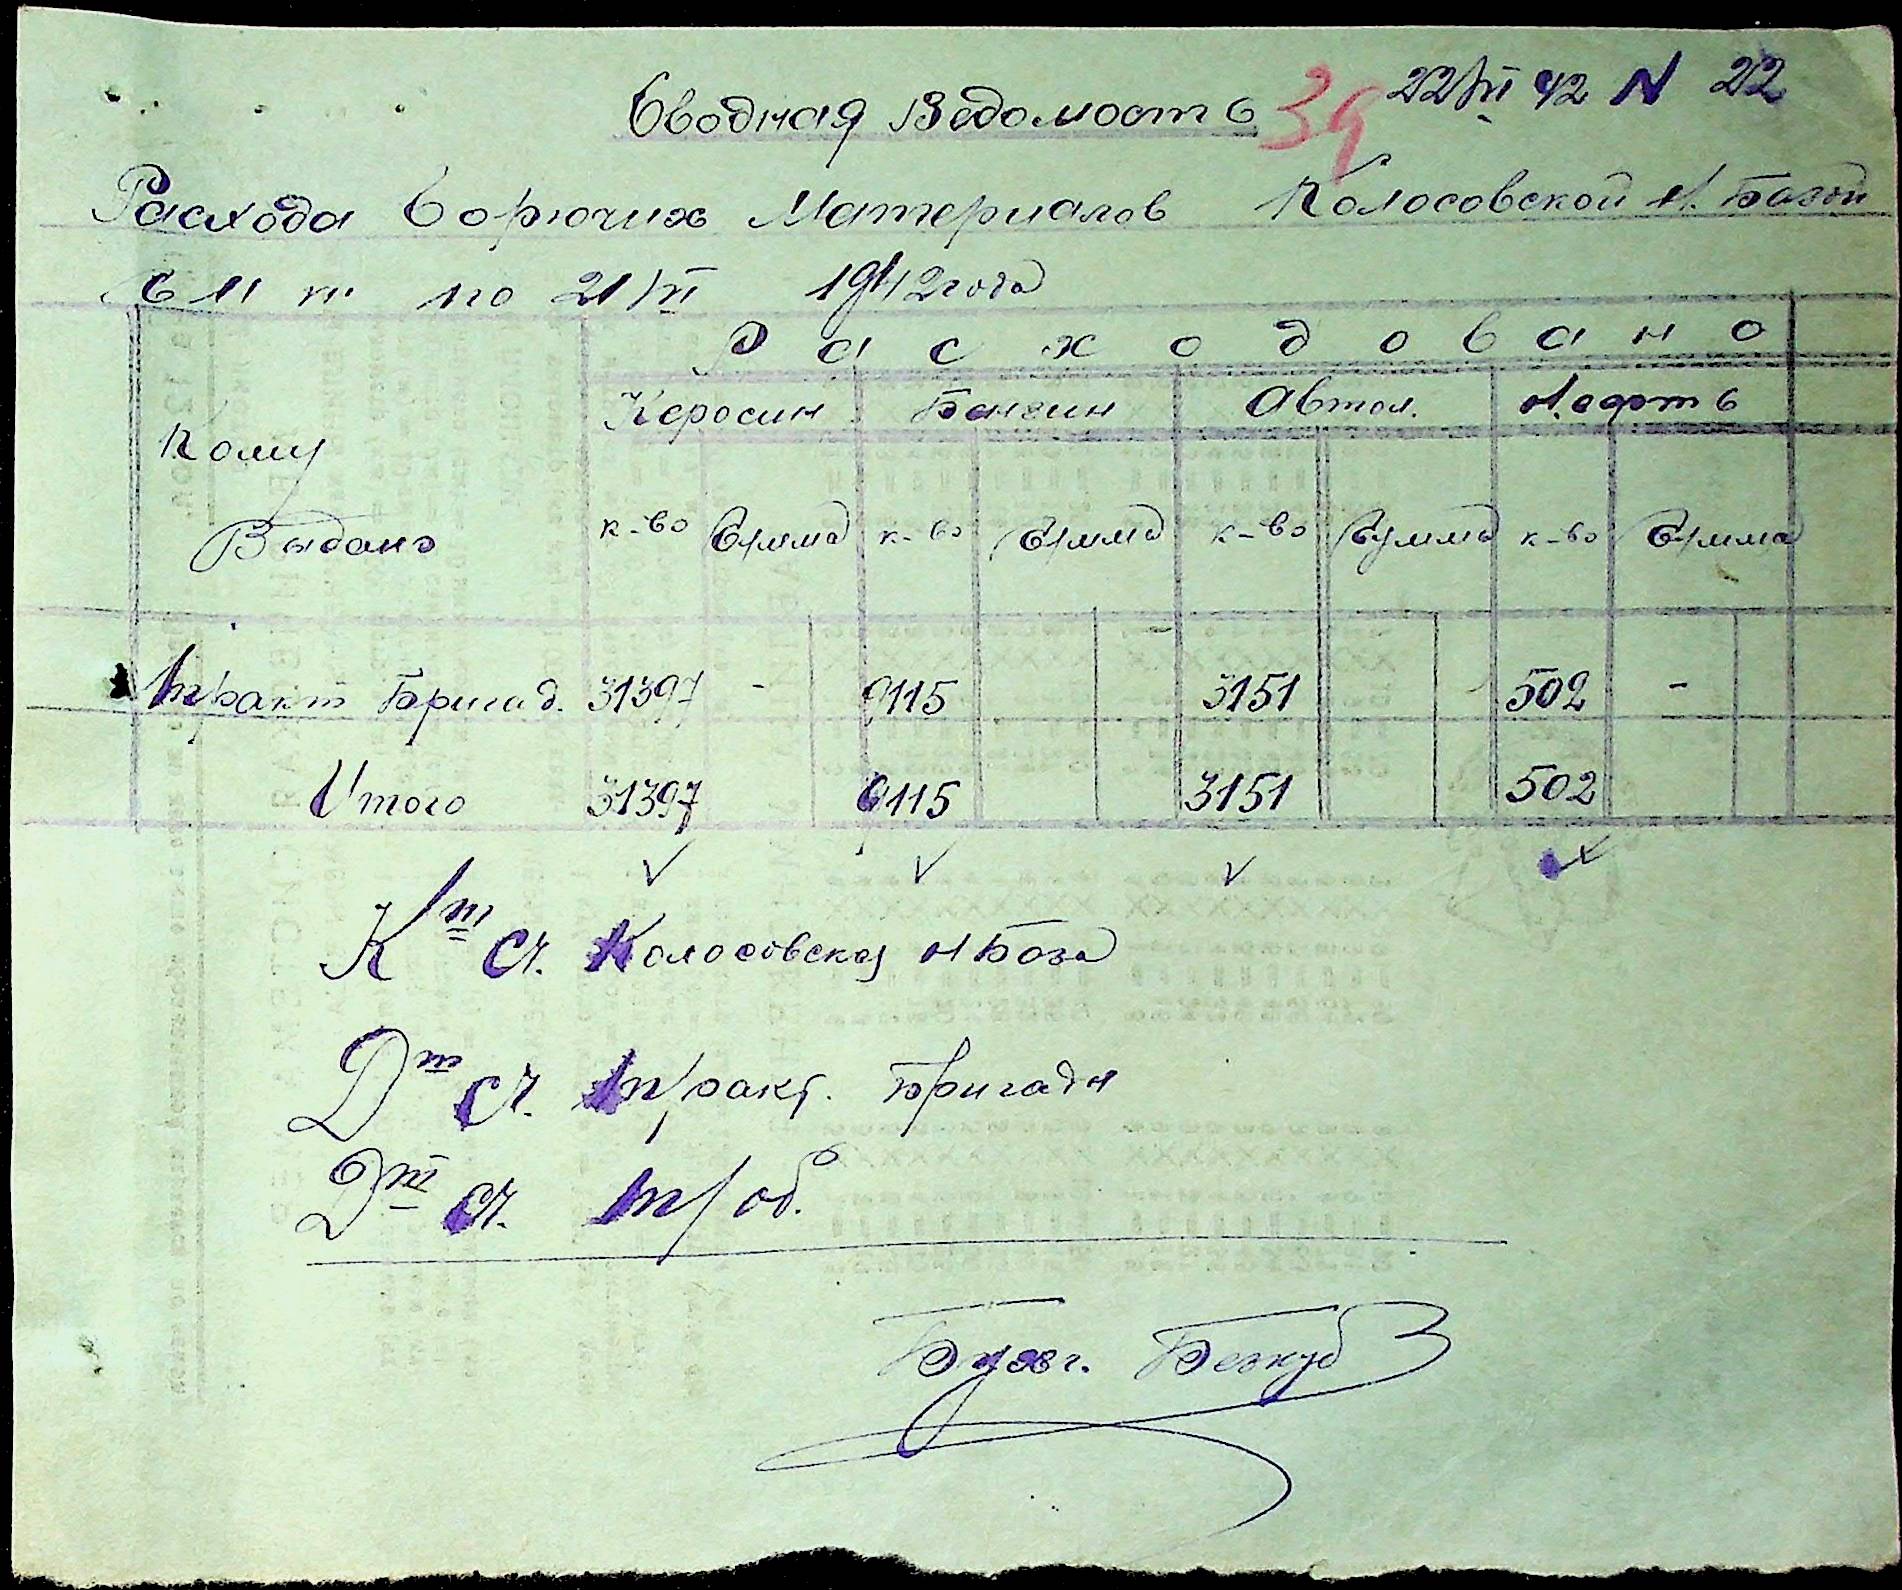 Сводная Ведомость 39 22/VI 42 N 22
Расхода Горючих Материалов Колосовской н. Базой
с 11 по 21/VI 1942 года
Кому Выдано
Расходовано
Керосин Бензин Автол. Нефть
к-во Сумма к-во Сумма к-во Сумма к-во Сумма
Тракт Бригад. 31397 - 9115 3151 502 -
Итого 31397 9115 3151 502
Кт сч. Колосовская н База
Дт сч. Тракт. Бригады
Дт сч. т/об.
Бухг.